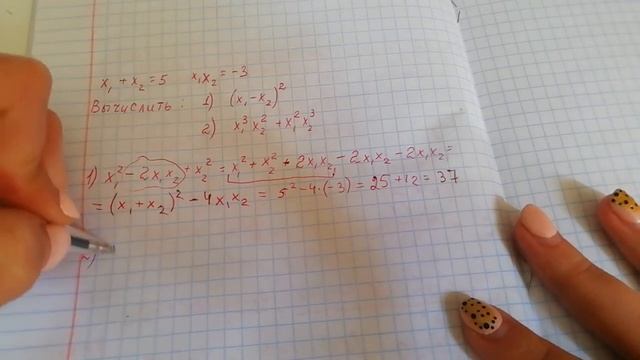 x₁ + x₂ = 5 x₁x₂ = -3
Вычислить : 1) (x₁ - x₂)²
2) x₁³x₂² + x₁²x₂³
1) x₁² - 2x₁x₂ + x₂² = x₁² + x₂² + 2x₁x₂ - 2x₁x₂ - 2x₁x₂ =
= (x₁ + x₂)² - 4x₁x₂ = 5² - 4·(-3) = 25 + 12 = 37
2)